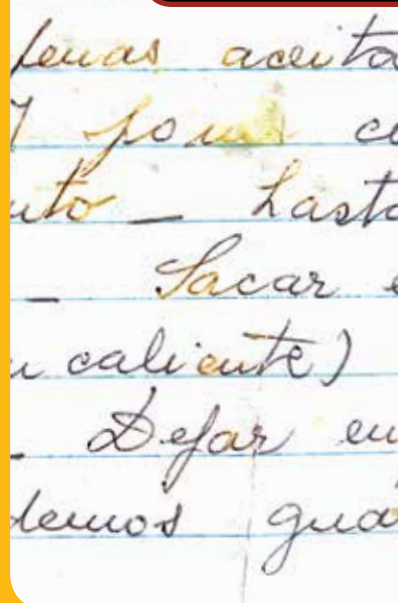 penas aceita
y poner c
uto - hasta
- Sacar e
n caliente)
- Dejar en
demos gua